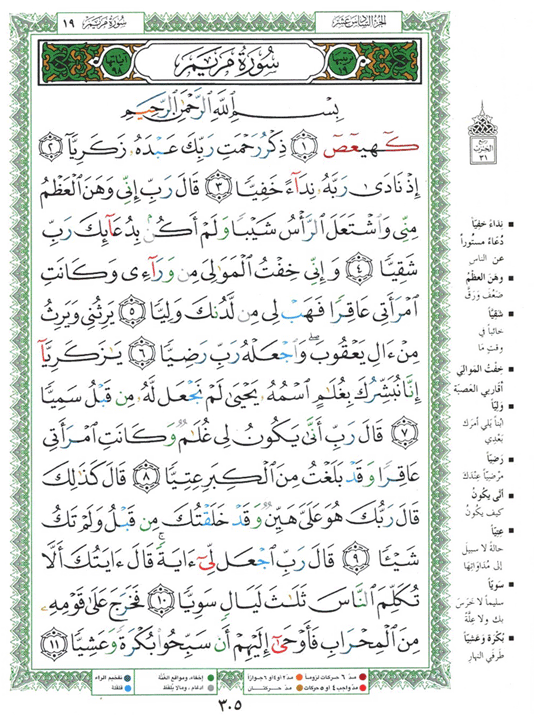 سُورَةُ مَرْيَمَ ١٩
الجُزءُ السَّادِسُ عَشَرَ
آيَاتُهَا ٩٨
سُورَةُ مَرْيَمَ
تَرْتِيبُهَا ١٩
بِسْمِ ٱللَّهِ ٱلرَّحْمَٰنِ ٱلرَّحِيمِ
كٓهيعٓصٓ ١ ذِكْرُ رَحْمَتِ رَبِّكَ عَبْدَهُۥ زَكَرِيَّآ ٢
إِذْ نَادَىٰ رَبَّهُۥ نِدَآءً خَفِيًّا ٣ قَالَ رَبِّ إِنِّى وَهَنَ ٱلْعَظْمُ
مِنِّى وَٱشْتَعَلَ ٱلرَّأْسُ شَيْبًا وَلَمْ أَكُنۢ بِدُعَآئِكَ رَبِّ
شَقِيًّا ٤ وَإِنِّى خِفْتُ ٱلْمَوَٰلِىَ مِن وَرَآءِى وَكَانَتِ
ٱمْرَأَتِى عَاقِرًا فَهَبْ لِى مِن لَّدُنكَ وَلِيًّا ٥ يَرِثُنِى وَيَرِثُ
مِنْ ءَالِ يَعْقُوبَ ۖ وَٱجْعَلْهُ رَبِّ رَضِيًّا ٦ يَٰزَكَرِيَّآ
إِنَّا نُبَشِّرُكَ بِغُلَٰمٍ ٱسْمُهُۥ يَحْيَىٰ لَمْ نَجْعَل لَّهُۥ مِن قَبْلُ سَمِيًّا
٧ قَالَ رَبِّ أَنَّىٰ يَكُونُ لِى غُلَٰمٌ وَكَانَتِ ٱمْرَأَتِى
عَاقِرًا وَقَدْ بَلَغْتُ مِنَ ٱلْكِبَرِ عِتِيًّا ٨ قَالَ كَذَٰلِكَ
قَالَ رَبُّكَ هُوَ عَلَىَّ هَيِّنٌ وَقَدْ خَلَقْتُكَ مِن قَبْلُ وَلَمْ تَكُ
شَيْـًٔا ٩ قَالَ رَبِّ ٱجْعَل لِّىٓ ءَايَةً ۚ قَالَ ءَايَتُكَ أَلَّا
تُكَلِّمَ ٱلنَّاسَ ثَلَٰثَ لَيَالٍ سَوِيًّا ١٠ فَخَرَجَ عَلَىٰ قَوْمِهِۦ
مِنَ ٱلْمِحْرَابِ فَأَوْحَىٰٓ إِلَيْهِمْ أَن سَبِّحُوا۟ بُكْرَةً وَعَشِيًّا ١١
ربع
الحزب
٣١
■ نِدَاءً خَفِيًّا
دُعَاءً مستُوراً
عن الناس
■ وهَنَ العَظْمُ
ضَعُفَ وَرَقَّ
■ شَقِيًّا
خائباً في
وقتٍ مَا
■ خِفْتُ المَوَالِي
أقاربي العَصبَة
■ وَلِيًّا
ابناً يَلي أمرَك
بَعْدِي
■ رَضِيًّا
مَرْضِيًّا عِنْدَكَ
■ أنَّى يَكُونُ
كيف يكُونُ
■ عِتِيًّا
حالةً لا سبيلَ
إلى مُدَاوَاتِهَا
■ سَوِيًّا
سليماً لا خَرَسَ
بك ولا عِلَّة
■ بُكْرَةً وَعَشِيًّا
طَرفَيِ النهار
مدّ ٦ حركات لزوماً
مدّ ٢ أو ٤ أو ٦ جوازاً
إخفاء، ومواقع الغُنَّة
تفخيم الراء
مدّ واجب ٤ أو ٥ حركات
مدّ حركتان
إدغام، ومالا يُلفَظ
قلقلة
٣٠٥